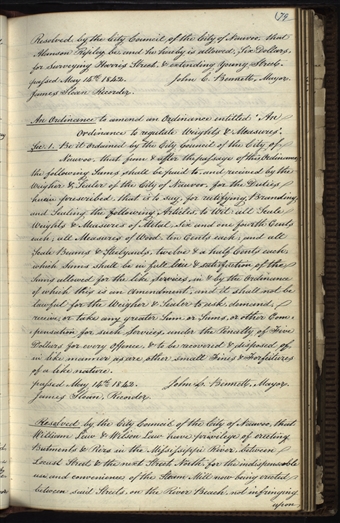 79
Resolved by the City Council of the City of Nauvoo, that
Alanson Ripley be and he hereby is allowed, Six Dollars
for Surveying Harris Street, & extending Young Street.
passed May 14th 1842. John C. Bennett, Mayor.
James Sloan Recorder.
An Ordinance to amend an Ordinance entitled "An
Ordinance to regulate Weights & Measures".
Sec. 1. Be it ordained by the City Council of the City of
Nauvoo, that from & after the passage of this Ordinance,
the following Sums shall be paid to, and received by the
Weigher & Sealer of the City of Nauvoo, for the Duties
herein prescribed, that is to say, for rectifying, Branding,
and Sealing the following Articles, to Wit: all Scale
Weights & Measures of Metal, six and one fourth Cents
each, all Measures of Wood, ten Cents each; and all
Scale Beams & Steelyards, twelve & a half Cents each,
which Sums shall be in full lieu & satisfaction of the
Sums allowed for the like Services, in & by the Ordinance
of which this is an Amendment, and it shall not be
lawful for the Weigher & Sealer to ask, demand,
receive, or take any greater Sum or Sums, or other Com-
pensation for such Services, under the Penalty of Five
Dollars for every Offence, & to be recovered & disposed of
in like manner as are other small Fines & Forfeitures
of a like nature.
passed May 14th 1842. John C. Bennett, Mayor.
James Sloan, Recorder.
Resolved by the City Council of the City of Nauvoo, that
William Law & Wilson Law have privilege of erecting
Butments & Piers in the Mississippi River between
Locust Street & the next Street North, for the indispensable
use and convenience of the Steam Mill now being erected
between said Streets on the River Beach, not infringing
upon